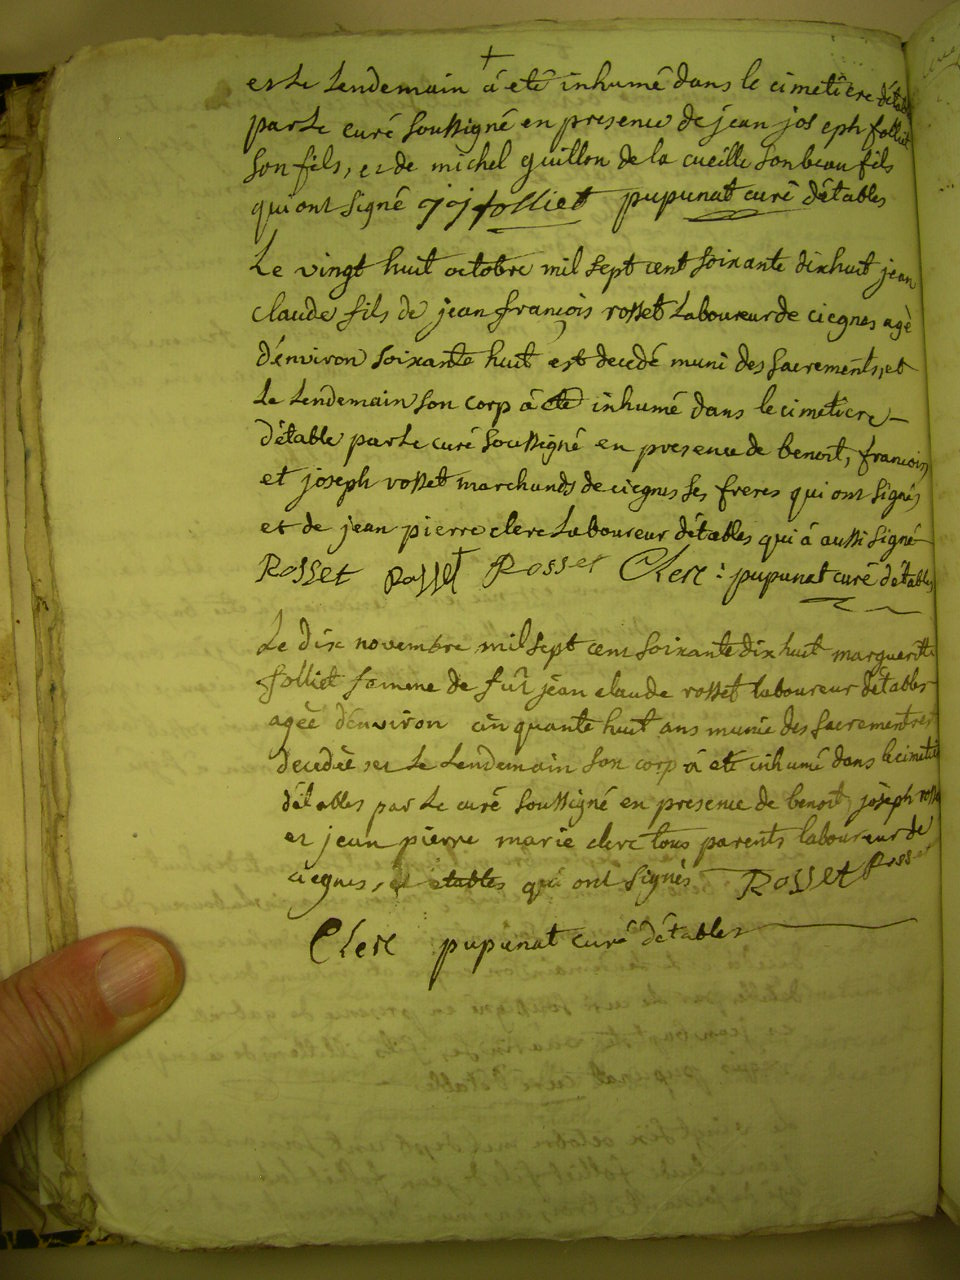 +
et le lendemain á eté inhumé dans le cimetière détables
par le curé soussigné en presence de jean joseph folliet
son fils, et de michel guillon de la cueille son beau fils
qui ont signé jj folliet pupunat curé détables
Le vingt huit octobre mil sept cent soixante dixhuit jean
claude fils de jean françois rosset laboureur de ciegnes agè
d'énviron soixante huit est decedé muni des sacrements, et
le lendemain son corp á eté inhumé dans le cimetiere
d'étable par le curé soussigné en presence de benoit, francois
et joseph rosset marchands de ciegnes ses freres qui ont signés
et de jean pierre clerc laboureur détables qui á aussi signé
Rosset Rosset Rosset Clerc : pupunat curé détables
Le dix novembre mil sept cent soixante dix huit margueritte
folliet femme de fut jean claude rosset laboureur détables
agèe dénviron cinquante huit ans munie des sacrements est
decedèe et le lendemain son corp á eté inhumé dans le cimetie
détables par le curé soussigné en presence de benoit, joseph rosset
et jean pierre marie clerc tous parents laboureur de
ciegnes, et etables qui ont signés Rosset Rosset
Clerc pupunat curé détables